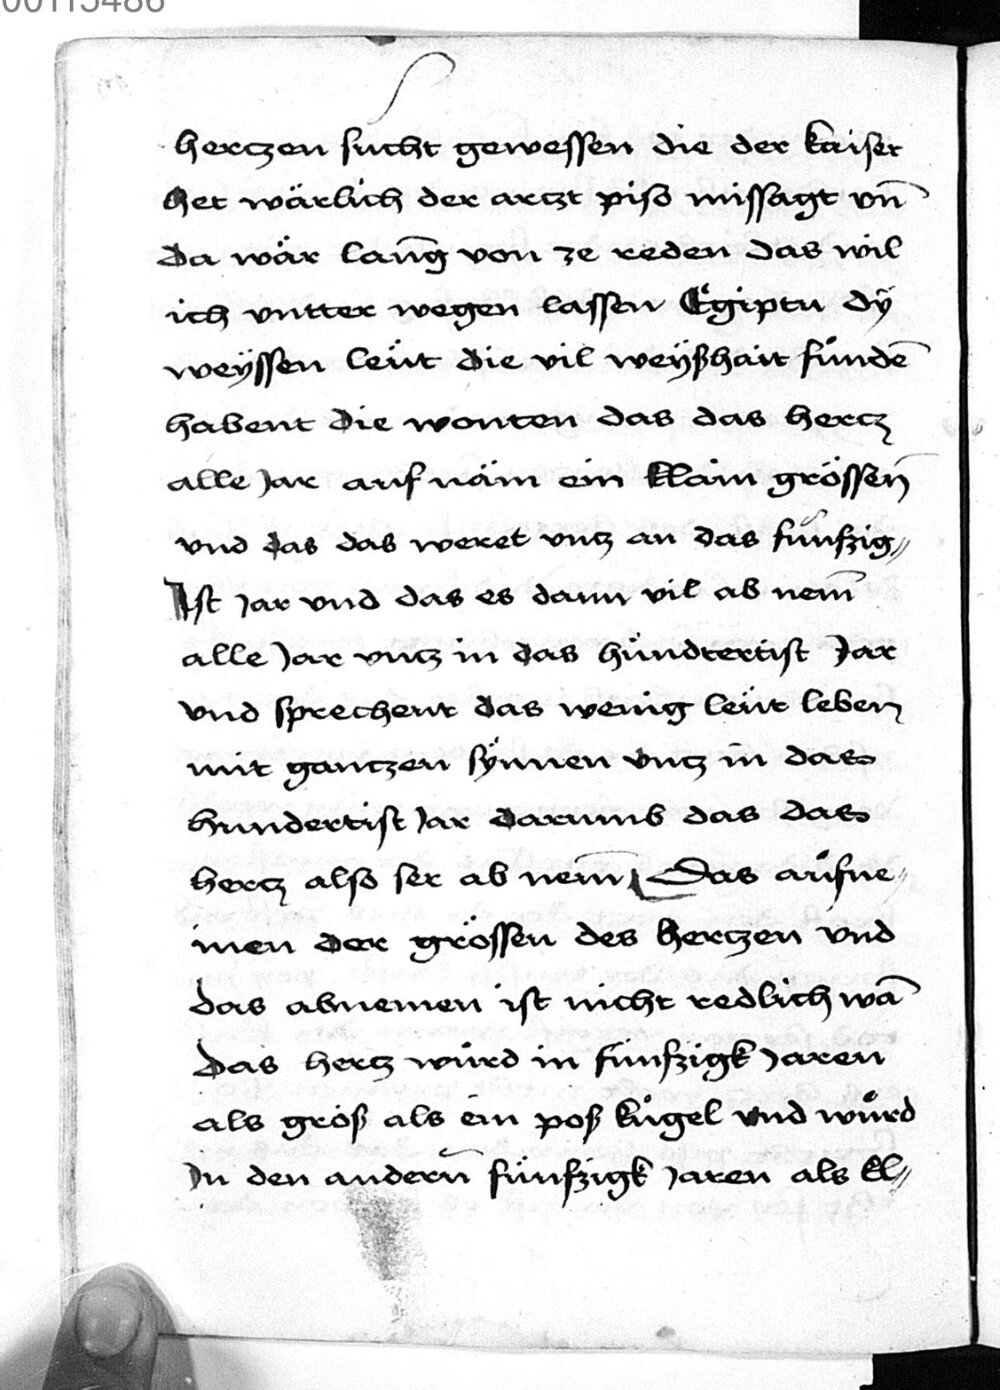 00115486
hertzen sucht gewessen die der kaiser
het wärlich der artzt piso missagt vn̄
Da wär lanḡ von ze reden das wil
ich vntter wegen lassen Egiptū dÿ
weÿssen leüt die vil weÿßhait fundē
habent die wonten das das hertz
alle Jar auf näm ein klain grössen̄
vnd das das weret vntz an das fünfzig〃
Ist jar vnd das es dann vil ab nem̄
alle Jar vntz in das hündtertist Jar
vnd sprechent das wenig leüt leben
mit gantzen sÿnnen vntz in das
hundertist Jar Darumb das das
hertz also ser ab nem̄ Das aufne〃
men der grössen des hertzen vnd
das abnemen ist nicht redlich wā
das hertz würd in fünfzigk jaren
als groß als ein poß kugel vnd würd
Jn den andern̄ fünfzigk jaren als kl〃